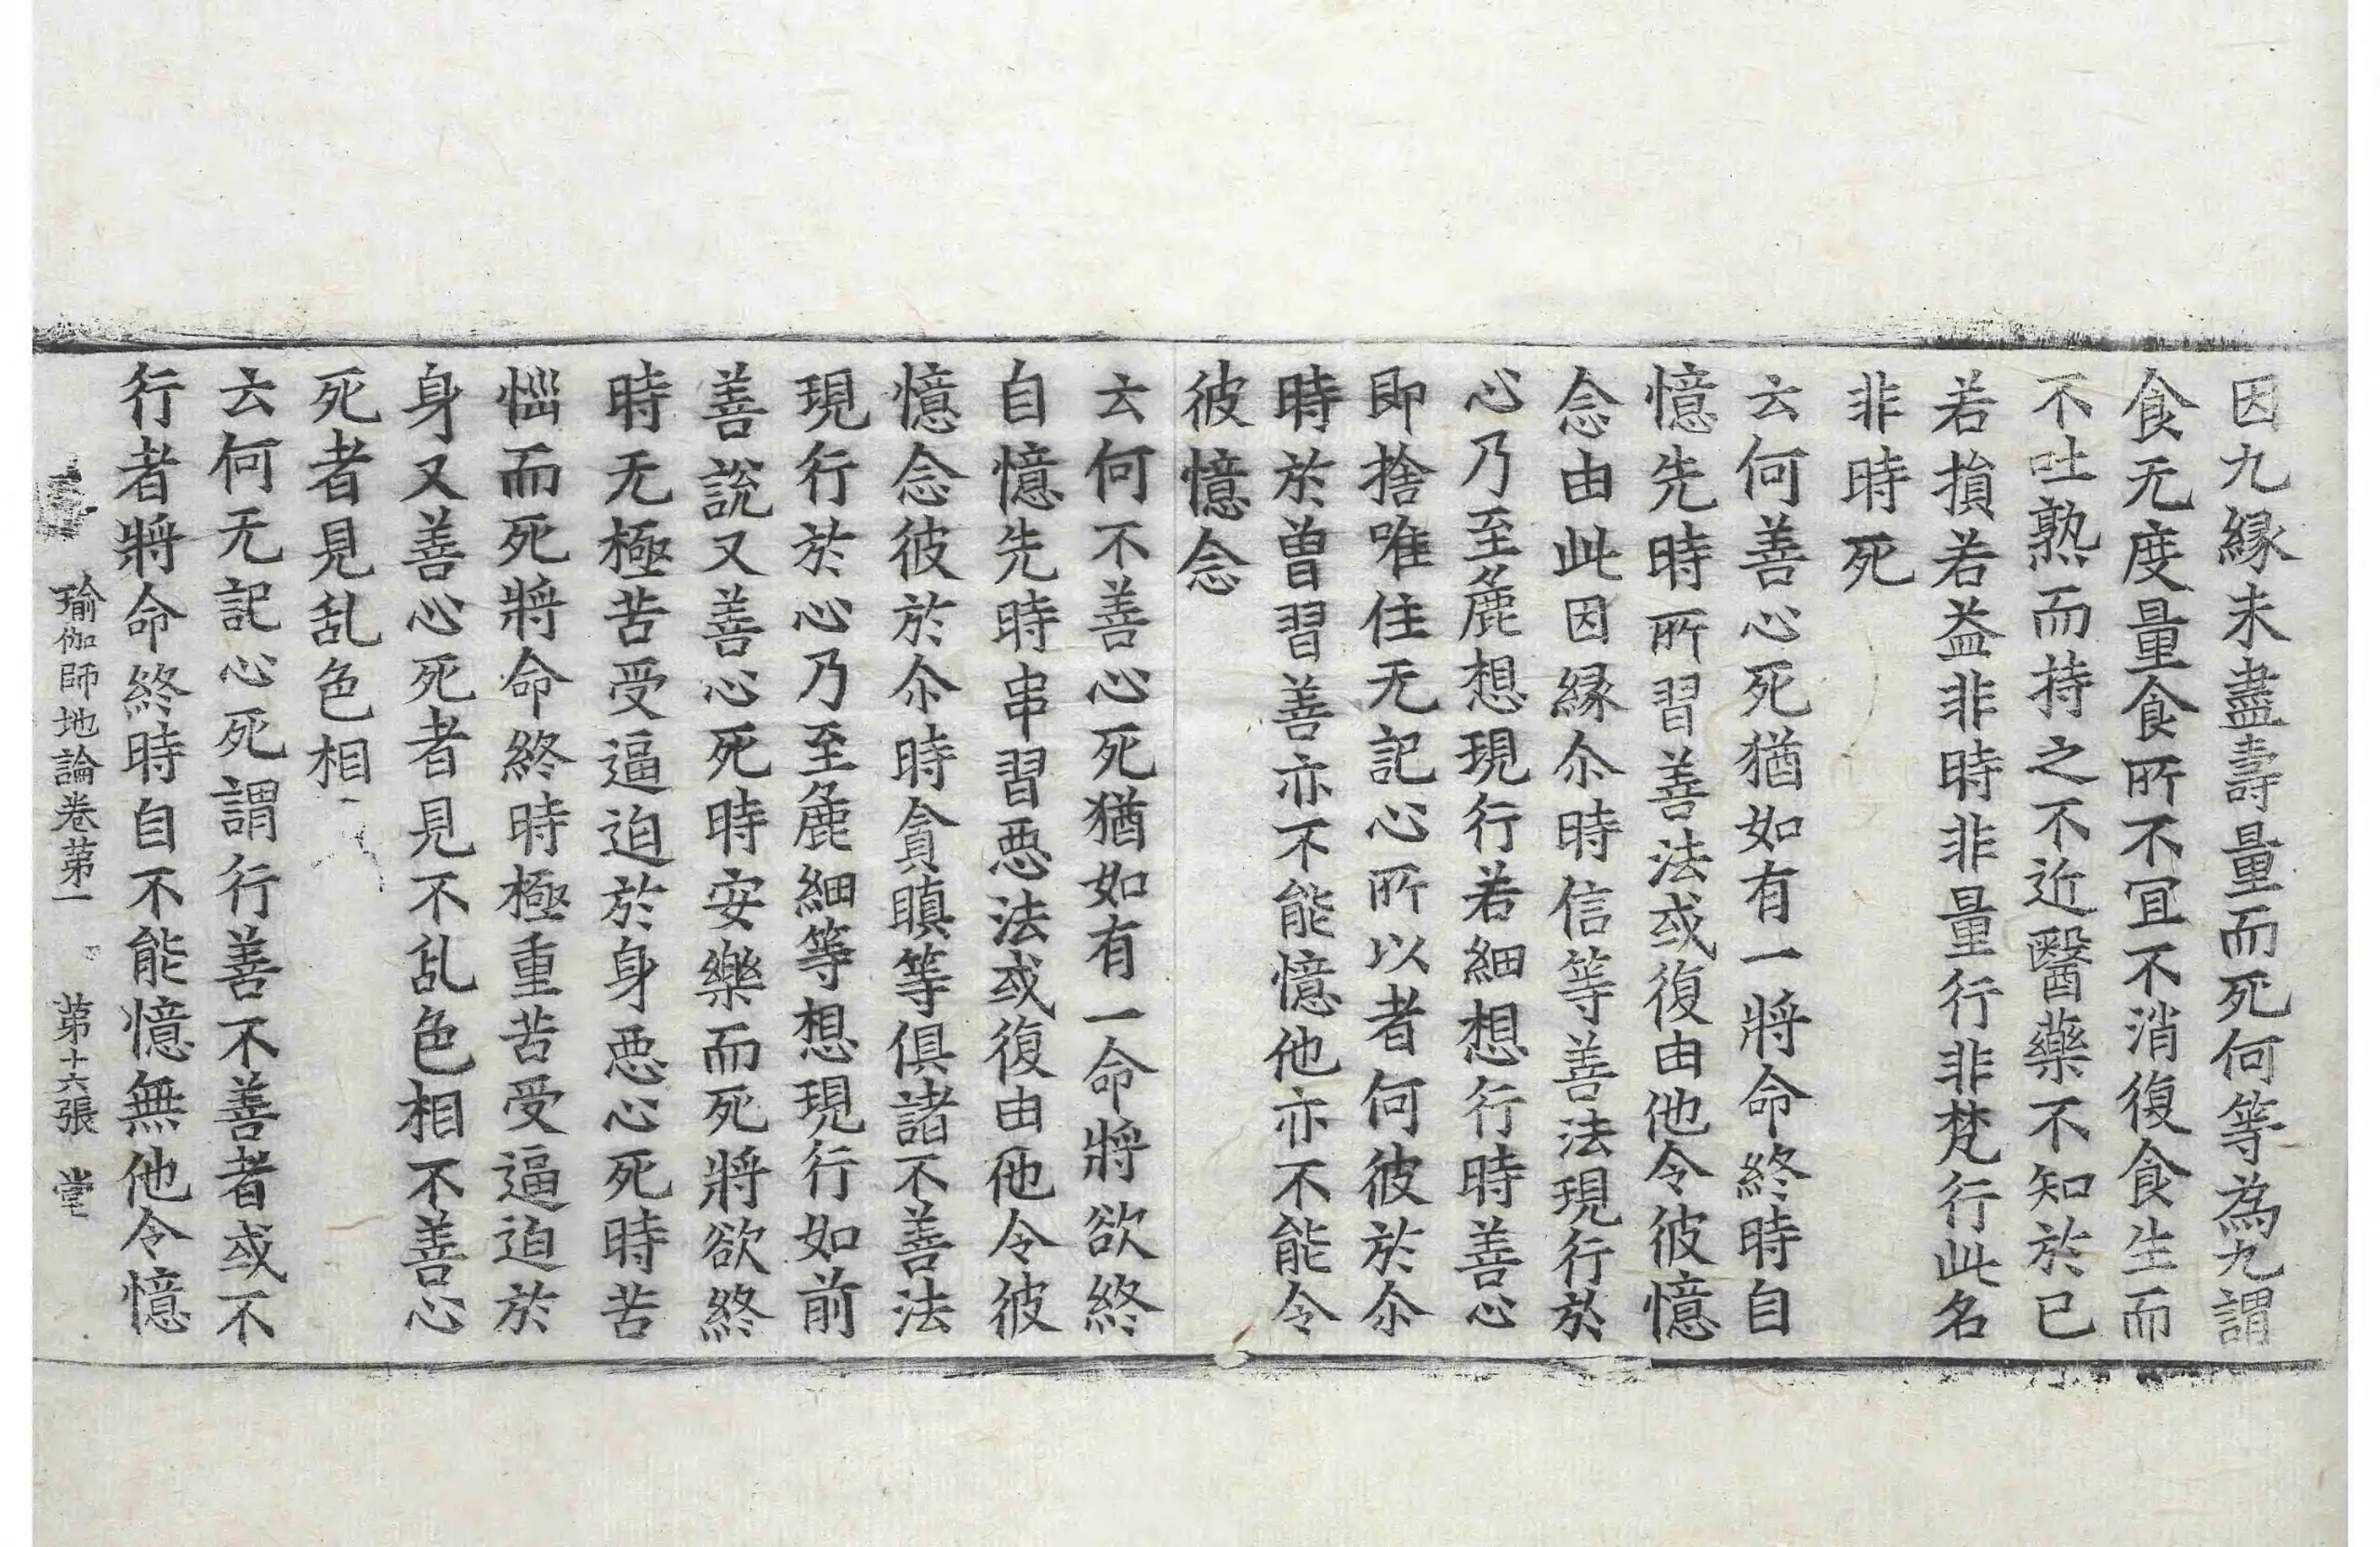 因九縁未盡壽量而死何等為九謂
食无度量食所不冝不消復食生而
不吐熟而持之不近醫藥不知於已
若損若益非時非量行非梵行此名
非時死
云何善心死猶如有一將命終時自
憶先時所習善法或復由他令彼憶
念由此因縁尒時信等善法現行於
心乃至麁想現行若細想行時善心
即捨唯住无記心所以者何彼於尒
時於曽習善亦不能憶他亦不能令
彼憶念
云何不善心死猶如有一命將欲終
自憶先時串習惡法或復由他令彼
憶念彼於尒時貪瞋等俱諸不善法
現行於心乃至麁細等想現行如前
善說又善心死時安樂而死將欲終
時无極苦受逼迫於身惡心死時苦
惱而死將命終時極重苦受逼迫於
身又善心死者見不乱色相不善心
死者見乱色相
云何无記心死謂行善不善者或不
行者將命終時自不能憶無他令憶
瑜伽師地論卷苐一 苐十六張